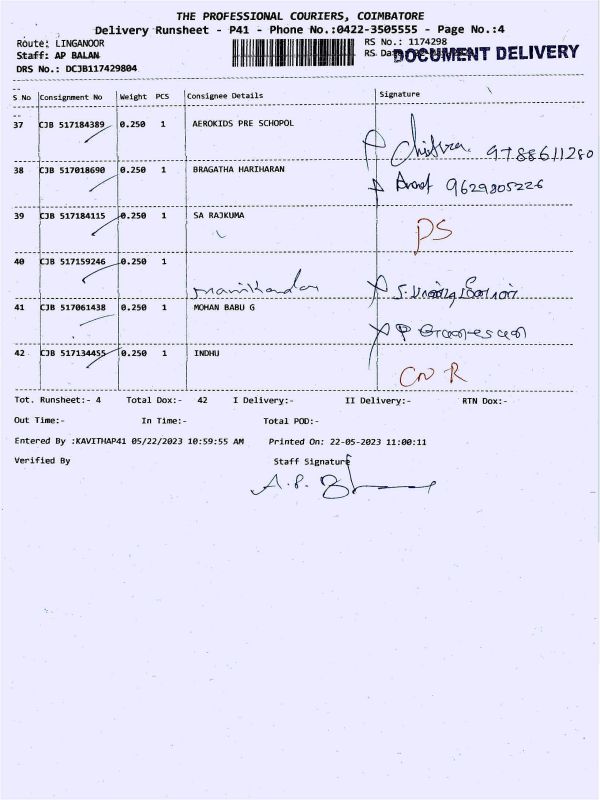 THE PROFESSIONAL COURIERS, COIMBATORE
Delivery Runsheet - P41 - Phone No.:0422-3505555 - Page No.:4
Route: LINGANOOR RS No.: 1174298
Staff: AP BALAN RS Da DOCUMENT DELIVERY
DRS No.: DCJB117429804
S No Consignment No Weight PCS Consignee Details Signature
37 CJB 517184389 0.250 1 AEROKIDS PRE SCHOPOL Chitra. 9788611280
38 CJB 517018690 0.250 1 BRAGATHA HARIHARAN 9629805226
39 CJB 517184115 0.250 1 SA RAJKUMA PS
40 CJB 517159246 0.250 1 manikandan
41 CJB 517061438 0.250 1 MOHAN BABU G
42 CJB 517134455 0.250 1 INDHU CNR
Tot. Runsheet:- 4 Total Dox:- 42 I Delivery:- II Delivery:- RTN Dox:-
Out Time:- In Time:- Total POD:-
Entered By :KAVITHAP41 05/22/2023 10:59:55 AM Printed On: 22-05-2023 11:00:11
Verified By Staff Signature
A.P.